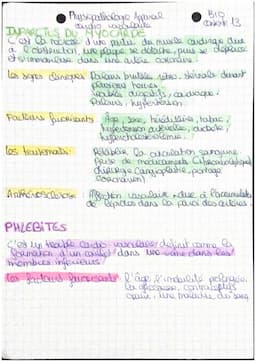 Physiopathologie Appareil
cardio vasculaire
BIO
13
INFARCTUS DU MYOCARDE
C'est la nécrose d'une partie du muscle cardiaque due
à l'obstruction, une plaque se détache, puis se déplace
et s'immobilise dans une artère coronaire.
Les signes cliniques Douleurs brutales, rétro-sternale durant
plusieurs heures,
troubles digestifs, cardiaques,
Pâleurs, hypotension.
Facteurs favorisants Age, sexe, hérédité, tabac,
hypertension artérielle,
hypercholestérolémie.
Les traitements Rétablir la circulation sanguine
prise de médicaments
chirurgie (angioplastie, pontage
coronarien)
Athérosclérose Affection vasculaire due à l'accumulation
de lipides dans la paroi des artères.
PHLEBITES
C'est un trouble cardio-vasculaire définit comme la
formation d'un caillot dans une veine dans les
membres inférieurs
Les facteurs favorisants L'âge, l'immobilité prolongée,
la grossesse, contraceptifs
maladie du sang